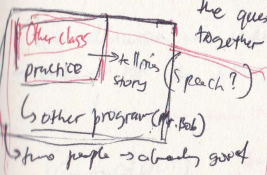 the ques
together
Other class
practice → telling story (speach?)
↳ other program (Mr. Bob)
↳ two people → already good